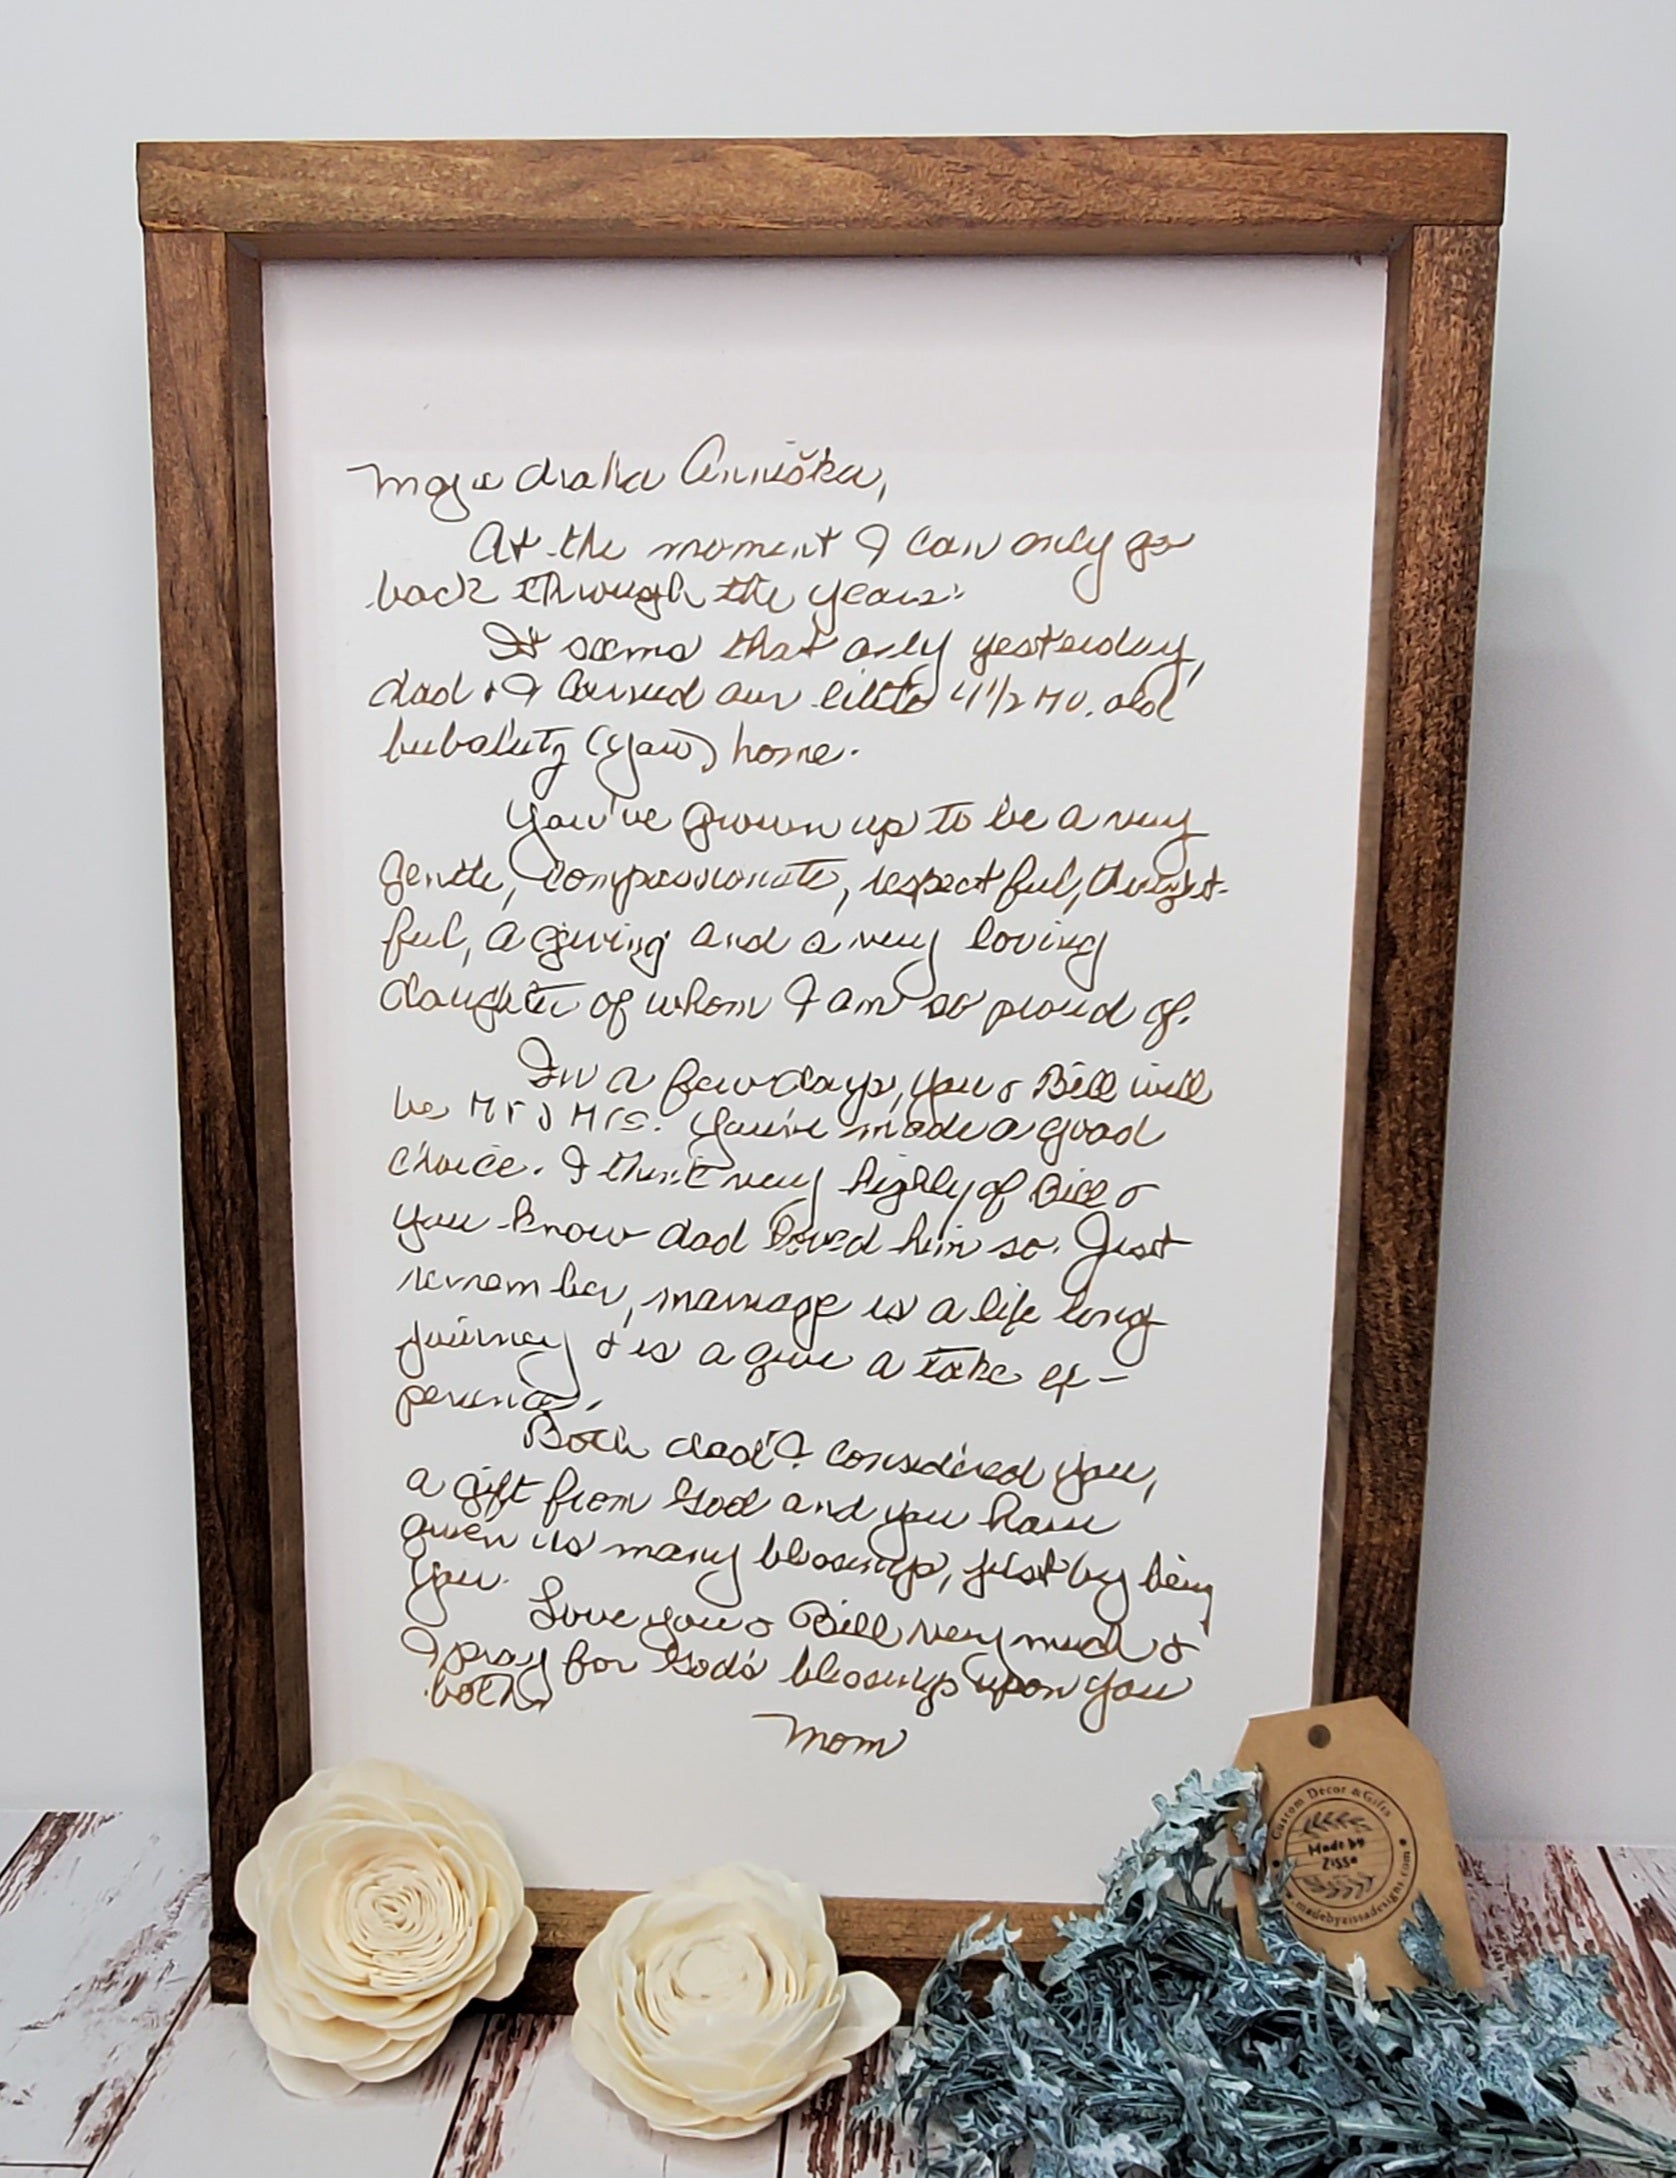 Moja draha Anniška,
At the moment I can only go
back through the years.
It seems that only yesterday,
dad & I carried our little 4 1/2 MO. old
(you) home.
You've grown up to be a very
gentle, compassionate, respectful, thought-
ful, a giving and a very loving
daughter of whom I am so proud of.
In a few days, you & Bill will
be Mr & Mrs. You've made a good
choice. I think very highly of Bill &
you know dad loved him so. Just
remember, marriage is a life long
journey & is a give & take ex-
perience.
Both dad & I considered you,
a gift from God and you have
given us many blessings, just by being
you.
Love you & Bill very much &
I pray for God's blessings upon you
both.
Mom
Custom Decor & Gifts
Made by
Zissa
www.madebyzissadesigns.com